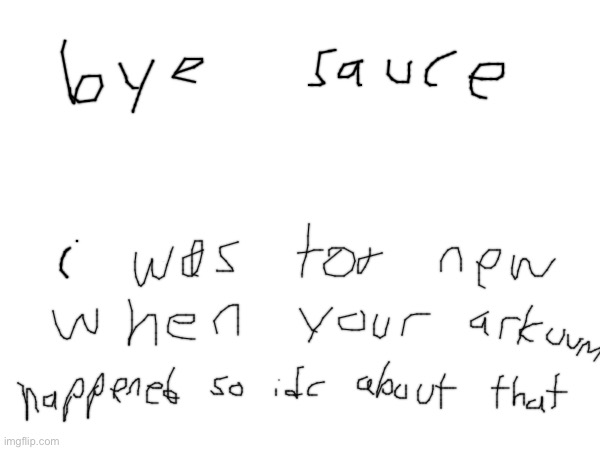 bye sauce
i was too new
when your arkuum
happened so idc about that
imgflip.com